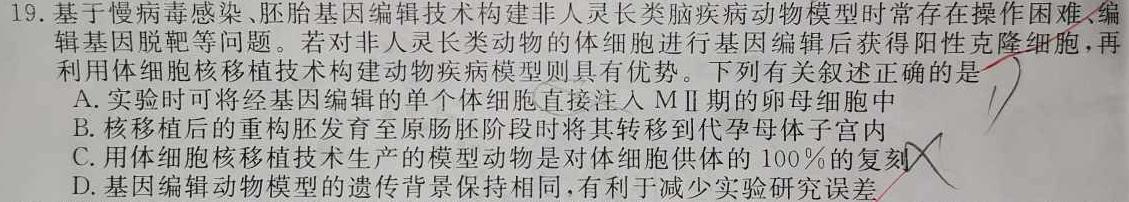 19. 基于慢病毒感染、胚胎基因编辑技术构建非人灵长类脑疾病动物模型时常存在操作困难、编
辑基因脱靶等问题。若对非人灵长类动物的体细胞进行基因编辑后获得阳性克隆细胞,再
利用体细胞核移植技术构建动物疾病模型则具有优势。下列有关叙述正确的是
A. 实验时可将经基因编辑的单个体细胞直接注入 MⅡ期的卵母细胞中
B. 核移植后的重构胚发育至原肠胚阶段时将其转移到代孕母体子宫内
C. 用体细胞核移植技术生产的模型动物是对体细胞供体的 100%的复刻
D. 基因编辑动物模型的遗传背景保持相同,有利于减少实验研究误差